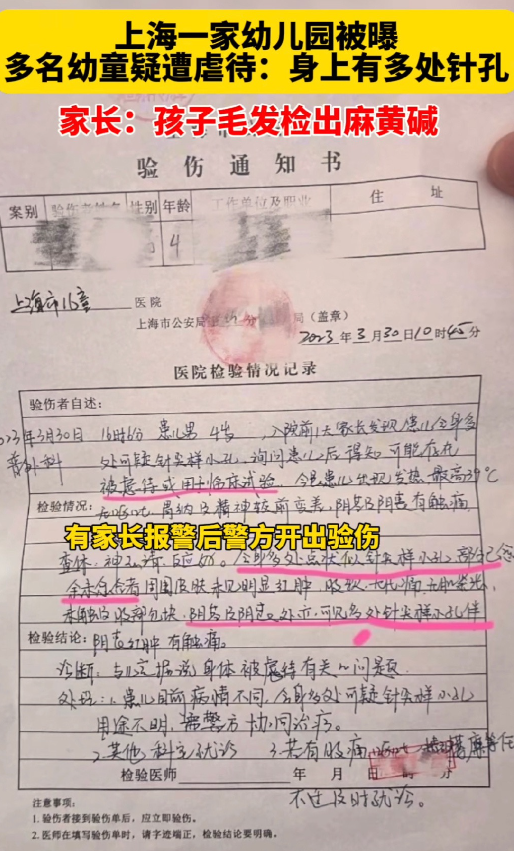 上海一家幼儿园被曝
多名幼童疑遭虐待：身上有多处针孔
家长：孩子毛发检出麻黄碱
验伤通知书
案别 验伤者姓名 性别 年龄 工作单位及职业 住 址
4
上海市儿童 医院
上海市公安局 分 局（盖章）
2023年3月30日10时45分
医院检验情况记录
验伤者自述：
2023年3月30日 16时6分 患儿男 4岁，入院前1天家长发现患儿全身多
普外科 处可疑针尖样小孔，询问患儿后得知可能存在
被虐待或用于临床试验。今患儿出现发热 最高39℃
检验情况： 精神较前变差，阴茎及阴囊有触痛
有家长报警后警方开出验伤
查体：神志清 反应 全身多处点状似针尖样小孔，部分已愈
合 未愈合者周围皮肤未见明显红肿，
阴茎及阴囊 处亦可见多处针尖样小孔伴
检验结论： 阴茎红肿有触痛。
诊断： 据说身体被虐待有关心问题
处理：1.患儿目前病情不同，全身多处可疑针尖样小孔
用途不明，需警方协同治疗。
2.其他科室就诊 3.若有腹痛
检验医师 年 月 日
不适及时就诊。
注意事项：
1. 验伤者接到验伤单后，应立即验伤。
2. 医师在填写验伤单时，请字迹端正，检验结论要明确。